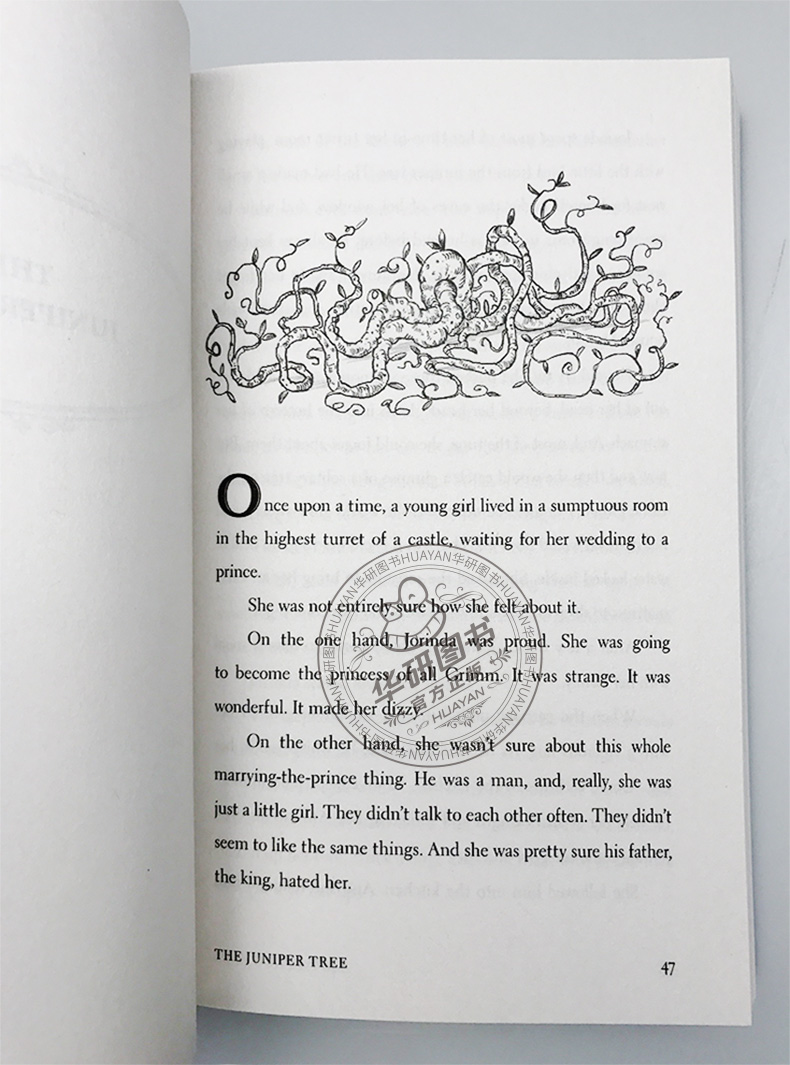 THE
JUNIPER
Once upon a time, a young girl lived in a sumptuous room
in the highest turret of a castle, waiting for her wedding to a
prince.
She was not entirely sure how she felt about it.
On the one hand, Jorinda was proud. She was going
to become the princess of all Grimm. It was strange. It was
wonderful. It made her dizzy.
On the other hand, she wasn't sure about this whole
marrying-the-prince thing. He was a man, and, really, she was
just a little girl. They didn't talk to each other often. They didn't
seem to like the same things. And she was pretty sure his father,
the king, hated her.
THE JUNIPER TREE
47
华研图书HUAYAN华研图书HUAYAN华研图书HUAYAN
华研图书
官方正版
HUAYAN